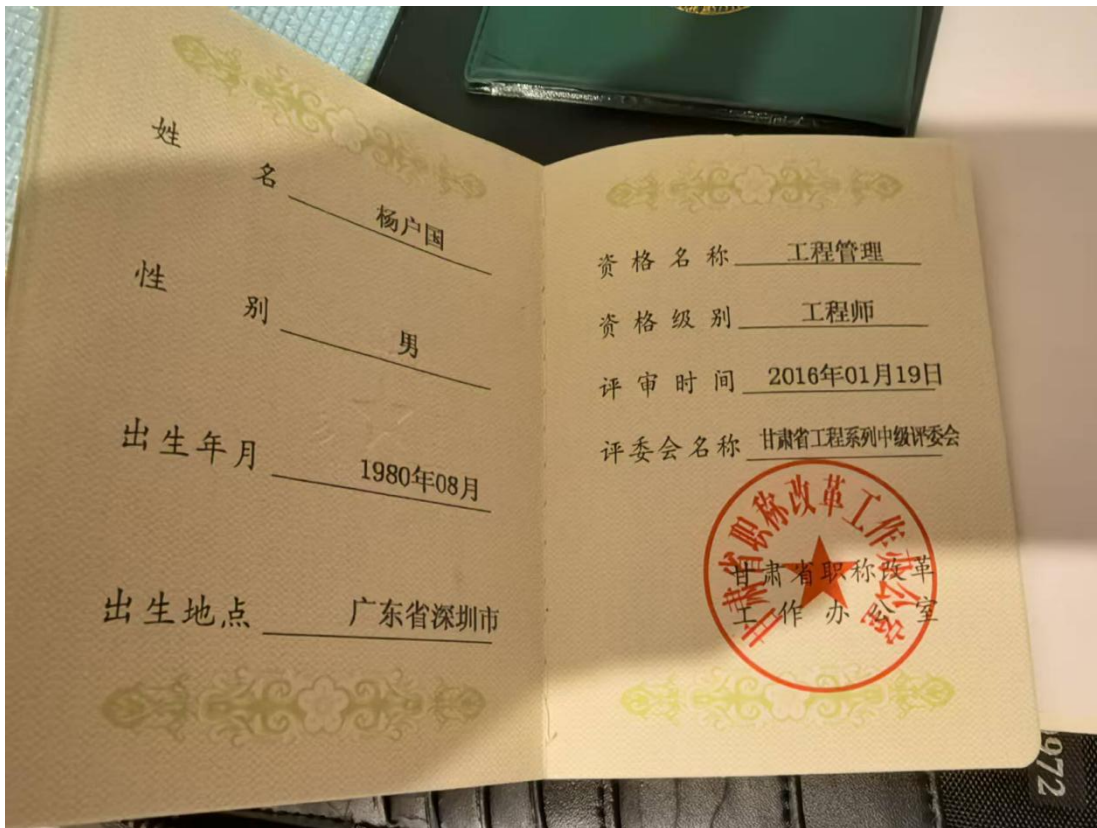 姓名 杨户国
性别 男
出生年月 1980年08月
出生地点 广东省深圳市
资格名称 工程管理
资格级别 工程师
评审时间 2016年01月19日
评委会名称 甘肃省工程系列中级评委会
甘肃省职称改革工作办公室
甘肃省职称改革
工作办公室
0972